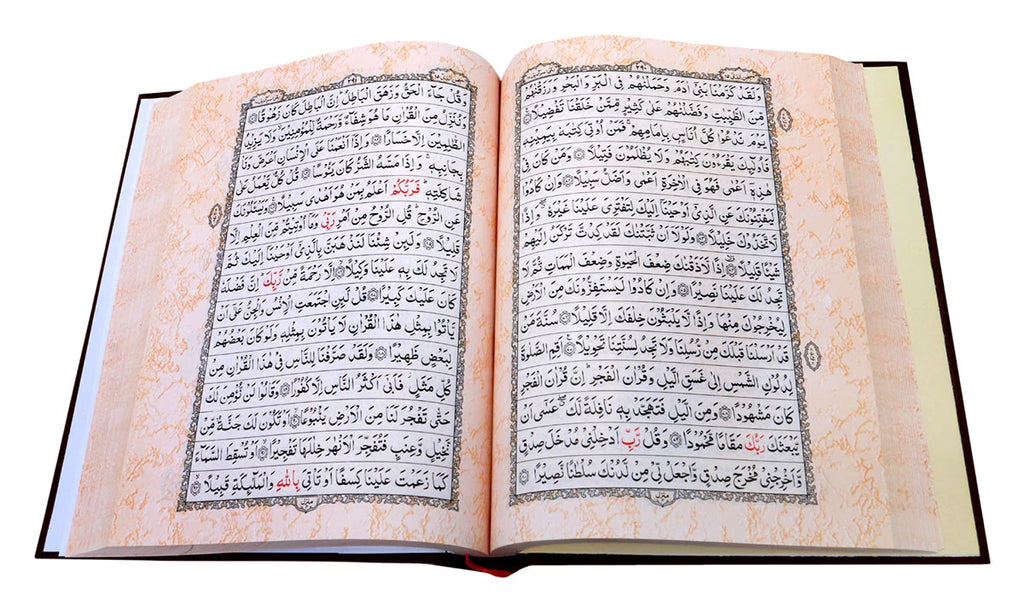 ٢٩٠
وَلَقَدْ كَرَّمْنَا بَنِيْٓ اٰدَمَ وَحَمَلْنٰهُمْ فِي الْبَرِّ وَالْبَحْرِ وَرَزَقْنٰهُمْ
مِّنَ الطَّيِّبٰتِ وَفَضَّلْنٰهُمْ عَلٰى كَثِيْرٍ مِّمَّنْ خَلَقْنَا تَفْضِيْلًا
يَوْمَ نَدْعُوْا كُلَّ اُنَاسٍۢ بِاِمَامِهِمْ فَمَنْ اُوْتِيَ كِتٰبَهٗ بِيَمِيْنِهٖ
فَاُولٰٓئِكَ يَقْرَءُوْنَ كِتٰبَهُمْ وَلَا يُظْلَمُوْنَ فَتِيْلًا وَمَنْ كَانَ فِيْ
هٰذِهٖٓ اَعْمٰى فَهُوَ فِي الْاٰخِرَةِ اَعْمٰى وَاَضَلُّ سَبِيْلًا وَاِنْ كَادُوْا
لَيَفْتِنُوْنَكَ عَنِ الَّذِيْٓ اَوْحَيْنَآ اِلَيْكَ لِتَفْتَرِيَ عَلَيْنَا غَيْرَهٗ وَاِذًا
لَّاتَّخَذُوْكَ خَلِيْلًا وَلَوْلَآ اَنْ ثَبَّتْنٰكَ لَقَدْ كِدْتَّ تَرْكَنُ اِلَيْهِمْ
شَيْئًا قَلِيْلًا اِذًا لَّاَذَقْنٰكَ ضِعْفَ الْحَيٰوةِ وَضِعْفَ الْمَمَاتِ ثُمَّ لَا
تَجِدُ لَكَ عَلَيْنَا نَصِيْرًا وَاِنْ كَادُوْا لَيَسْتَفِزُّوْنَكَ مِنَ الْاَرْضِ
لِيُخْرِجُوْكَ مِنْهَا وَاِذًا لَّا يَلْبَثُوْنَ خِلٰفَكَ اِلَّا قَلِيْلًا سُنَّةَ مَنْ
قَدْ اَرْسَلْنَا قَبْلَكَ مِنْ رُّسُلِنَا وَلَا تَجِدُ لِسُنَّتِنَا تَحْوِيْلًا اَقِمِ الصَّلٰوةَ
لِدُلُوْكِ الشَّمْسِ اِلٰى غَسَقِ الَّيْلِ وَقُرْاٰنَ الْفَجْرِ اِنَّ قُرْاٰنَ الْفَجْرِ
كَانَ مَشْهُوْدًا وَمِنَ الَّيْلِ فَتَهَجَّدْ بِهٖ نَافِلَةً لَّكَ عَسٰٓى اَنْ
يَّبْعَثَكَ رَبُّكَ مَقَامًا مَّحْمُوْدًا وَقُلْ رَّبِّ اَدْخِلْنِيْ مُدْخَلَ صِدْقٍ
وَّاَخْرِجْنِيْ مُخْرَجَ صِدْقٍ وَّاجْعَلْ لِّيْ مِنْ لَّدُنْكَ سُلْطٰنًا نَّصِيْرًا
منزل
٢٩١
وَقُلْ جَآءَ الْحَقُّ وَزَهَقَ الْبَاطِلُ اِنَّ الْبَاطِلَ كَانَ زَهُوْقًا
وَنُنَزِّلُ مِنَ الْقُرْاٰنِ مَا هُوَ شِفَآءٌ وَّرَحْمَةٌ لِّلْمُؤْمِنِيْنَ وَلَا يَزِيْدُ
الظّٰلِمِيْنَ اِلَّا خَسَارًا وَاِذَآ اَنْعَمْنَا عَلَى الْاِنْسَانِ اَعْرَضَ وَنَاٰ
بِجَانِبِهٖ وَاِذَا مَسَّهُ الشَّرُّ كَانَ يَـُٔوْسًا قُلْ كُلٌّ يَّعْمَلُ عَلٰى
شَاكِلَتِهٖ فَرَبُّكُمْ اَعْلَمُ بِمَنْ هُوَ اَهْدٰى سَبِيْلًا وَيَسْـَٔلُوْنَكَ
عَنِ الرُّوْحِ قُلِ الرُّوْحُ مِنْ اَمْرِ رَبِّيْ وَمَآ اُوْتِيْتُمْ مِّنَ الْعِلْمِ اِلَّا
قَلِيْلًا وَلَئِنْ شِئْنَا لَنَذْهَبَنَّ بِالَّذِيْٓ اَوْحَيْنَآ اِلَيْكَ ثُمَّ
لَا تَجِدُ لَكَ بِهٖ عَلَيْنَا وَكِيْلًا اِلَّا رَحْمَةً مِّنْ رَّبِّكَ اِنَّ فَضْلَهٗ
كَانَ عَلَيْكَ كَبِيْرًا قُلْ لَّئِنِ اجْتَمَعَتِ الْاِنْسُ وَالْجِنُّ عَلٰٓى اَنْ
يَّاْتُوْا بِمِثْلِ هٰذَا الْقُرْاٰنِ لَا يَاْتُوْنَ بِمِثْلِهٖ وَلَوْ كَانَ بَعْضُهُمْ
لِبَعْضٍ ظَهِيْرًا وَلَقَدْ صَرَّفْنَا لِلنَّاسِ فِيْ هٰذَا الْقُرْاٰنِ مِنْ
كُلِّ مَثَلٍ فَاَبٰٓى اَكْثَرُ النَّاسِ اِلَّا كُفُوْرًا وَقَالُوْا لَنْ نُّؤْمِنَ لَكَ
حَتّٰى تَفْجُرَ لَنَا مِنَ الْاَرْضِ يَنْۢبُوْعًا اَوْ تَكُوْنَ لَكَ جَنَّةٌ مِّنْ
نَّخِيْلٍ وَّعِنَبٍ فَتُفَجِّرَ الْاَنْهٰرَ خِلٰلَهَا تَفْجِيْرًا اَوْ تُسْقِطَ السَّمَآءَ
كَمَا زَعَمْتَ عَلَيْنَا كِسَفًا اَوْ تَاْتِيَ بِاللّٰهِ وَالْمَلٰٓئِكَةِ قَبِيْلًا
منزل